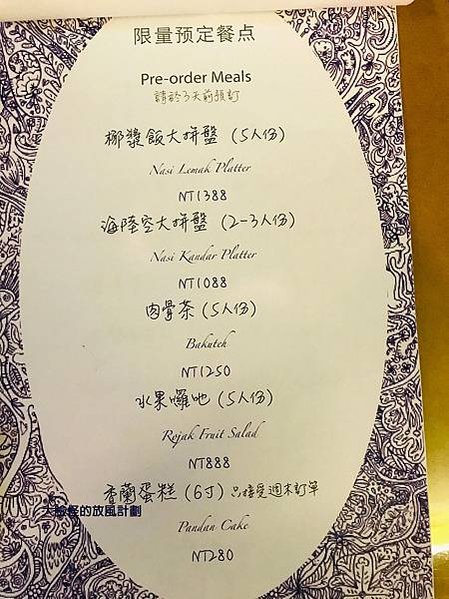 限量预定餐点
Pre-order Meals
請於3天前預訂
椰漿飯大拼盤 (5人份)
Nasi Lemak Platter
NT1388
海陸空大拼盤 (2-3人份)
Nasi Kandar Platter
NT1088
肉骨茶 (5人份)
Bakuteh
NT1250
水果囉吔 (5人份)
Rojak Fruit Salad
NT888
香蘭蛋糕 (6寸) 只接受週末訂單
大臉怪的放風計劃
Pandan Cake
NT280